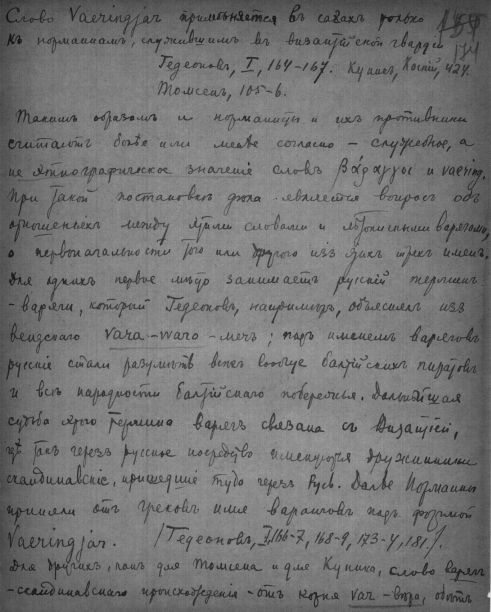 Слово Vaeringjar примѣняется въ сагахъ только
къ норманнамъ, служившимъ въ византійской гвардіи
Гедеоновъ, I, 164-167. Куникъ, 424.
Томсенъ, 105-6.
Такимъ образомъ и норманисты и ихъ противники
считаютъ болѣе или менѣе согласно – служебное, а
не этнографическое значеніе словъ βάραγγοι и vaering.
При такой постановкѣ дѣла является вопросъ объ
отношеніяхъ между этими словами и лѣтописными варягами,
о первоначальности того или другого изъ этихъ трехъ именъ.
Для однихъ первое мѣсто занимаетъ русскій терминъ
- варяги, который Гедеоновъ, напримѣръ, объяснялъ изъ
вендскаго vara-waro-мечъ; подъ именемъ варяговъ
русскіе стали разумѣть всѣхъ вообще балтійскихъ пиратовъ
и всѣ народности балтійскаго побережья. Дальнѣйшая
судьба этого термина варягъ связана съ Византіей,
гдѣ такъ черезъ русское посредство именуются дружинники
скандинавскіе, пришедшіе туда черезъ Русь. Далѣе Норманны
приняли отъ грековъ имя варанговъ подъ формой
Vaeringjar. /Гедеоновъ, I, 166-7, 168-9, 173-4, 181./.
Для другихъ, какъ для Томсена и для Куника, слово варягъ
- скандинавскаго происхожденія - отъ корня var - вѣра, обѣтъ